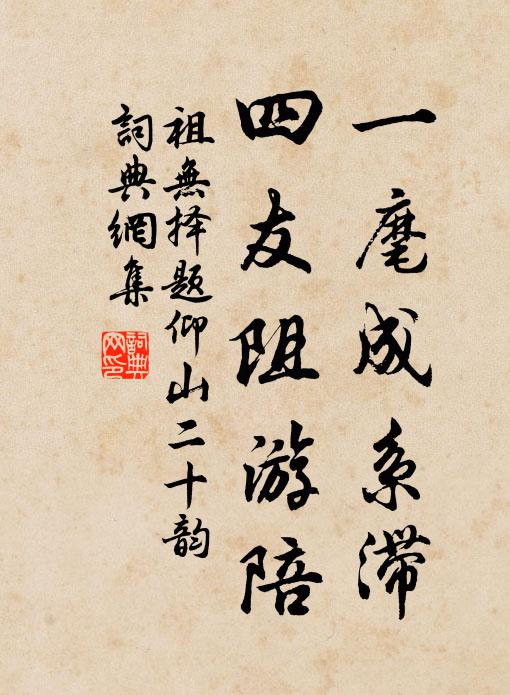 一麾成系滞
四友阻游陪
祖無择题仰山二十韵
詞典網集
詞典网印